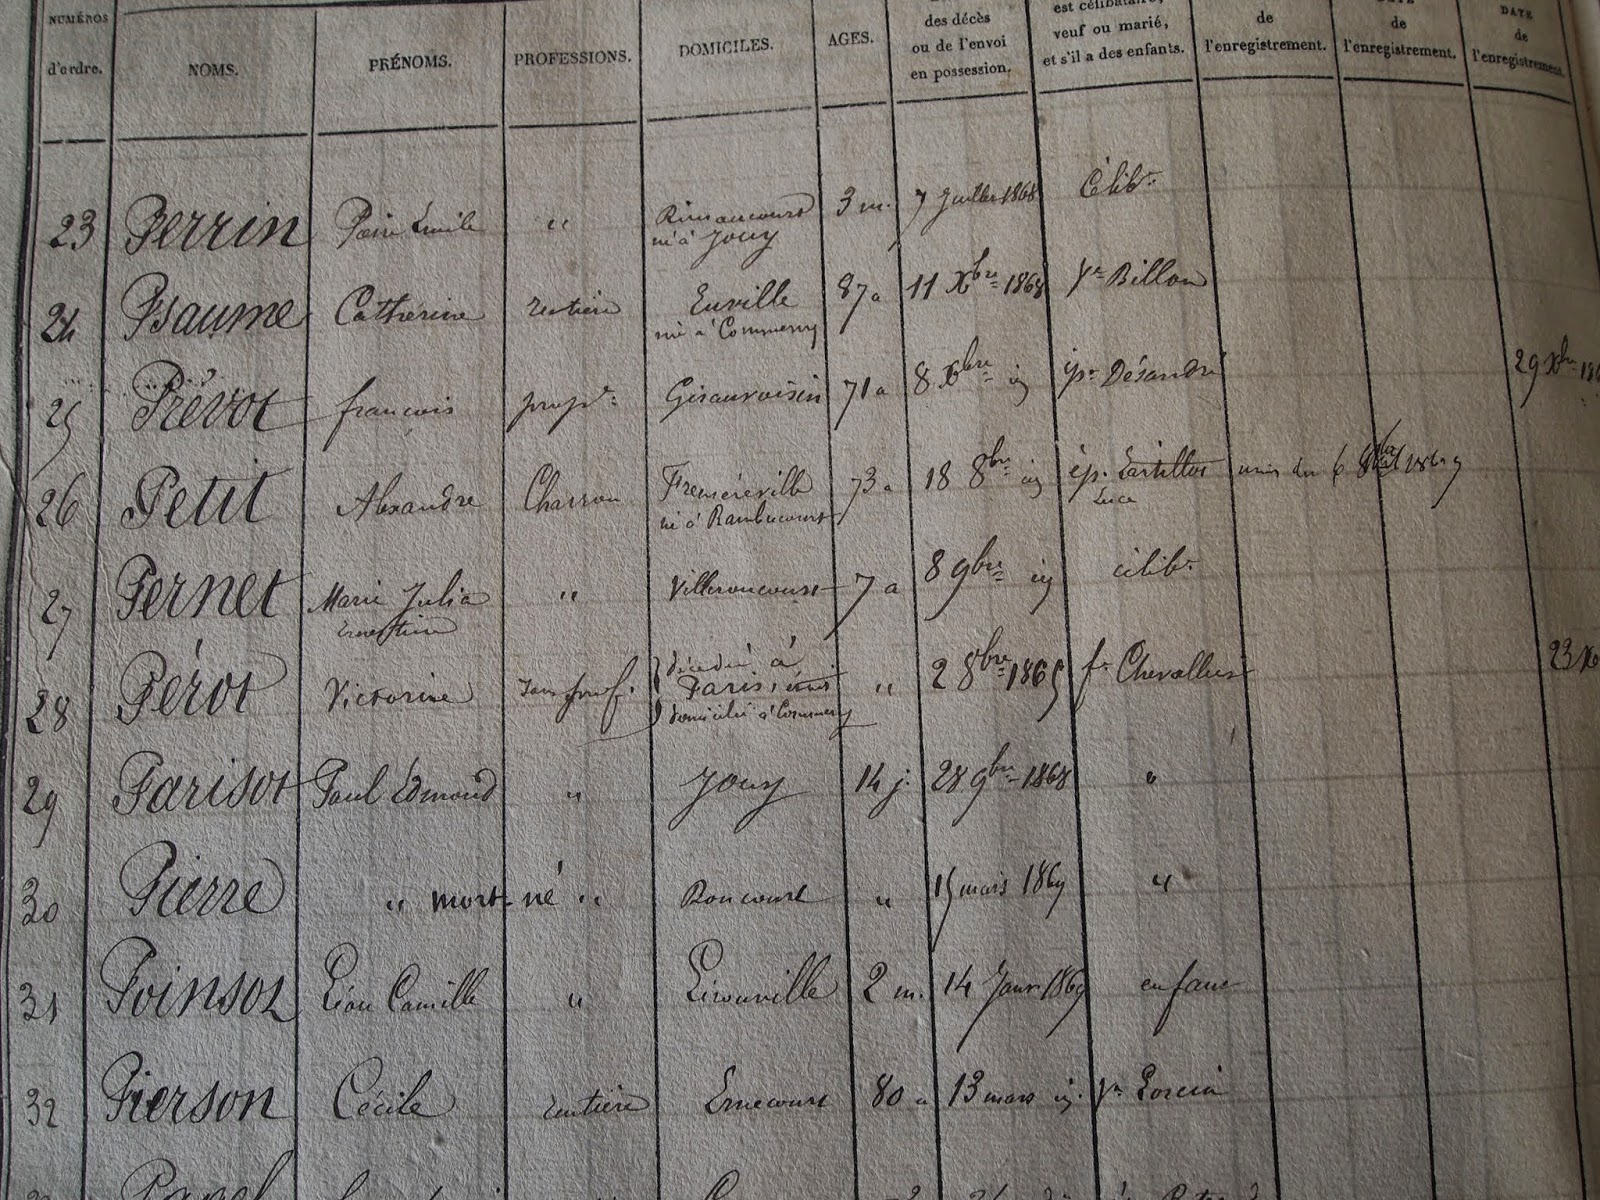 NUMÉROS d'ordre. NOMS. PRÉNOMS. PROFESSIONS. DOMICILES. AGES. des décès ou de l'envoi en possession. est célibataire, veuf ou marié, et s'il a des enfants. de l'enregistrement. DATE de l'enregistrement. DATE de l'enregistrement.
23 Perrin Emile " Rimaucourt né à Jouy 3 m. 7 Juillet 1868 Célib.re
24 Psaume Catherine rentière Euville née à Commercy 87 a 11 Xbre 1868 ve Billon
25 Prévot françois propre Girauvoisin 71 a 8 Xbre id ép. Désandré 29 Xbre
26 Petit Alexandre Charron Fremeréville né à Rambucourt 73 a 18 8bre id ép. Luce
27 Pernet Marie Julia Ernestine " Villeroncourt 7 a 8 9bre id célib.re
28 Pérot Victorine sans prof. décédée à Paris, domiciliée à Commercy " 2 8bre 1865 fe Chevallier 23
29 Parisot Paul Edmond " Jouy 14 j. 28 9bre 1868 "
30 Pierre " mort-né " Roncourt " 15 mars 1869 "
31 Poinsot Léon Camille " Lérouville 2 m. 14 Janv. 1869 enfant
32 Pierson Cécile rentière Ernecourt 80 a 13 mars id. ve